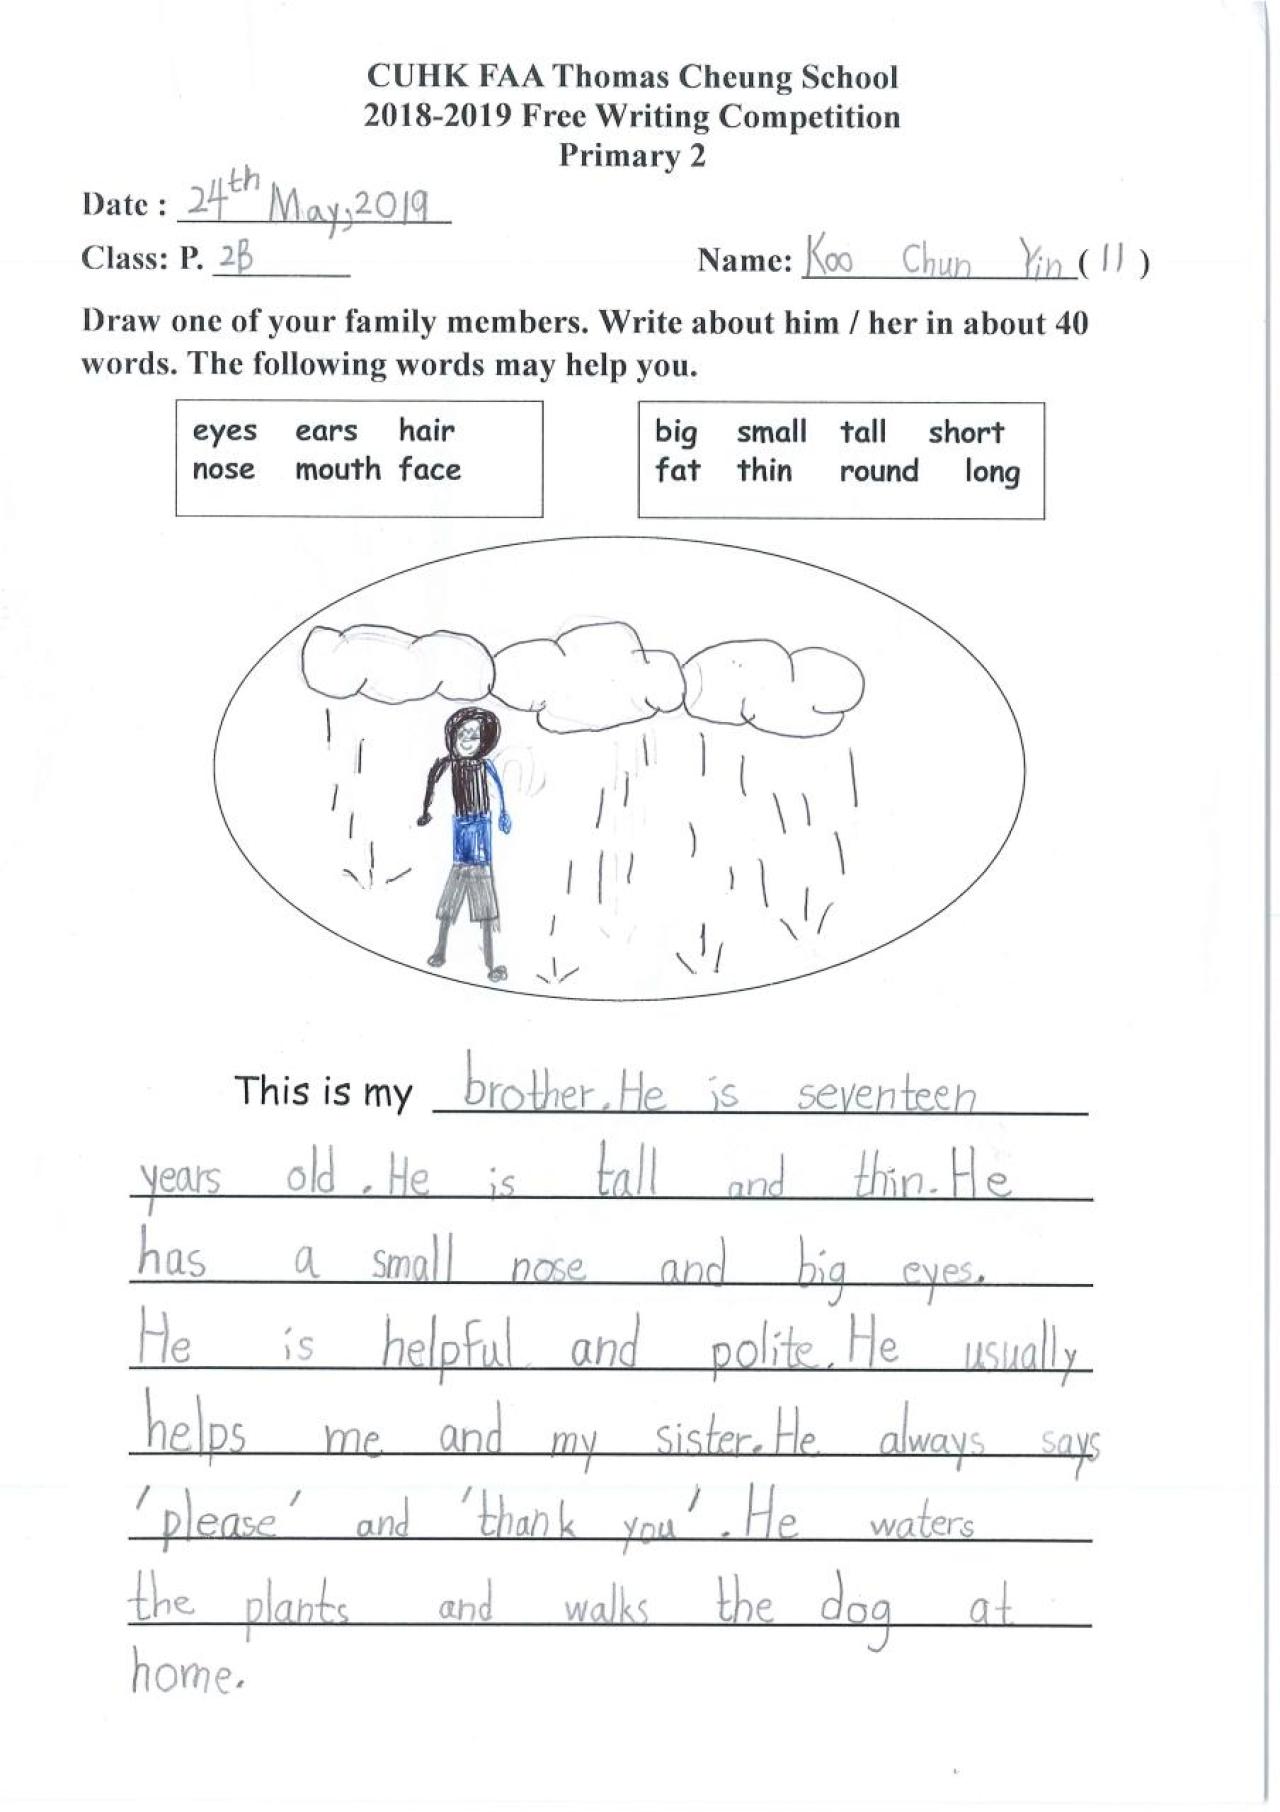 CUHK FAA Thomas Cheung School
2018-2019 Free Writing Competition
Primary 2
Date : 24th May,2019
Class: P. 2B Name: Koo Chun Yin ( 11 )
Draw one of your family members. Write about him / her in about 40
words. The following words may help you.
eyes ears hair
nose mouth face
big small tall short
fat thin round long
This is my brother. He is seventeen
years old. He is tall and thin. He
has a small nose and big eyes.
He is helpful and polite. He usually
helps me and my sister. He always says
'please' and 'thank you'. He waters
the plants and walks the dog at
home.